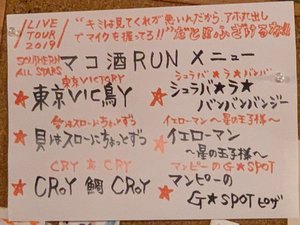 LIVE TOUR 2019 "キミは見てくれが悪いんだから、アホ丸出し
でマイクを握ってろ!!"だと!?ふざけるな!!
SOUTHERN ALL STARS
マコ酒RUNメニュー
東京VICTORY
★東京VIC鳥Y
愛はスローにちょっとずつ
★貝はスローにちょっとずつ
CRY 哀 CRY
★CRoY 鯛 CRoY
シュラバ★ラ★バンバ
★シュラバ★ラ★
バンバンバンジー
イエローマン〜星の王子様〜
★イエローマン
〜星の王子様〜
マンピーのG★SPOT
★マンピーの
G★SPOTピザ